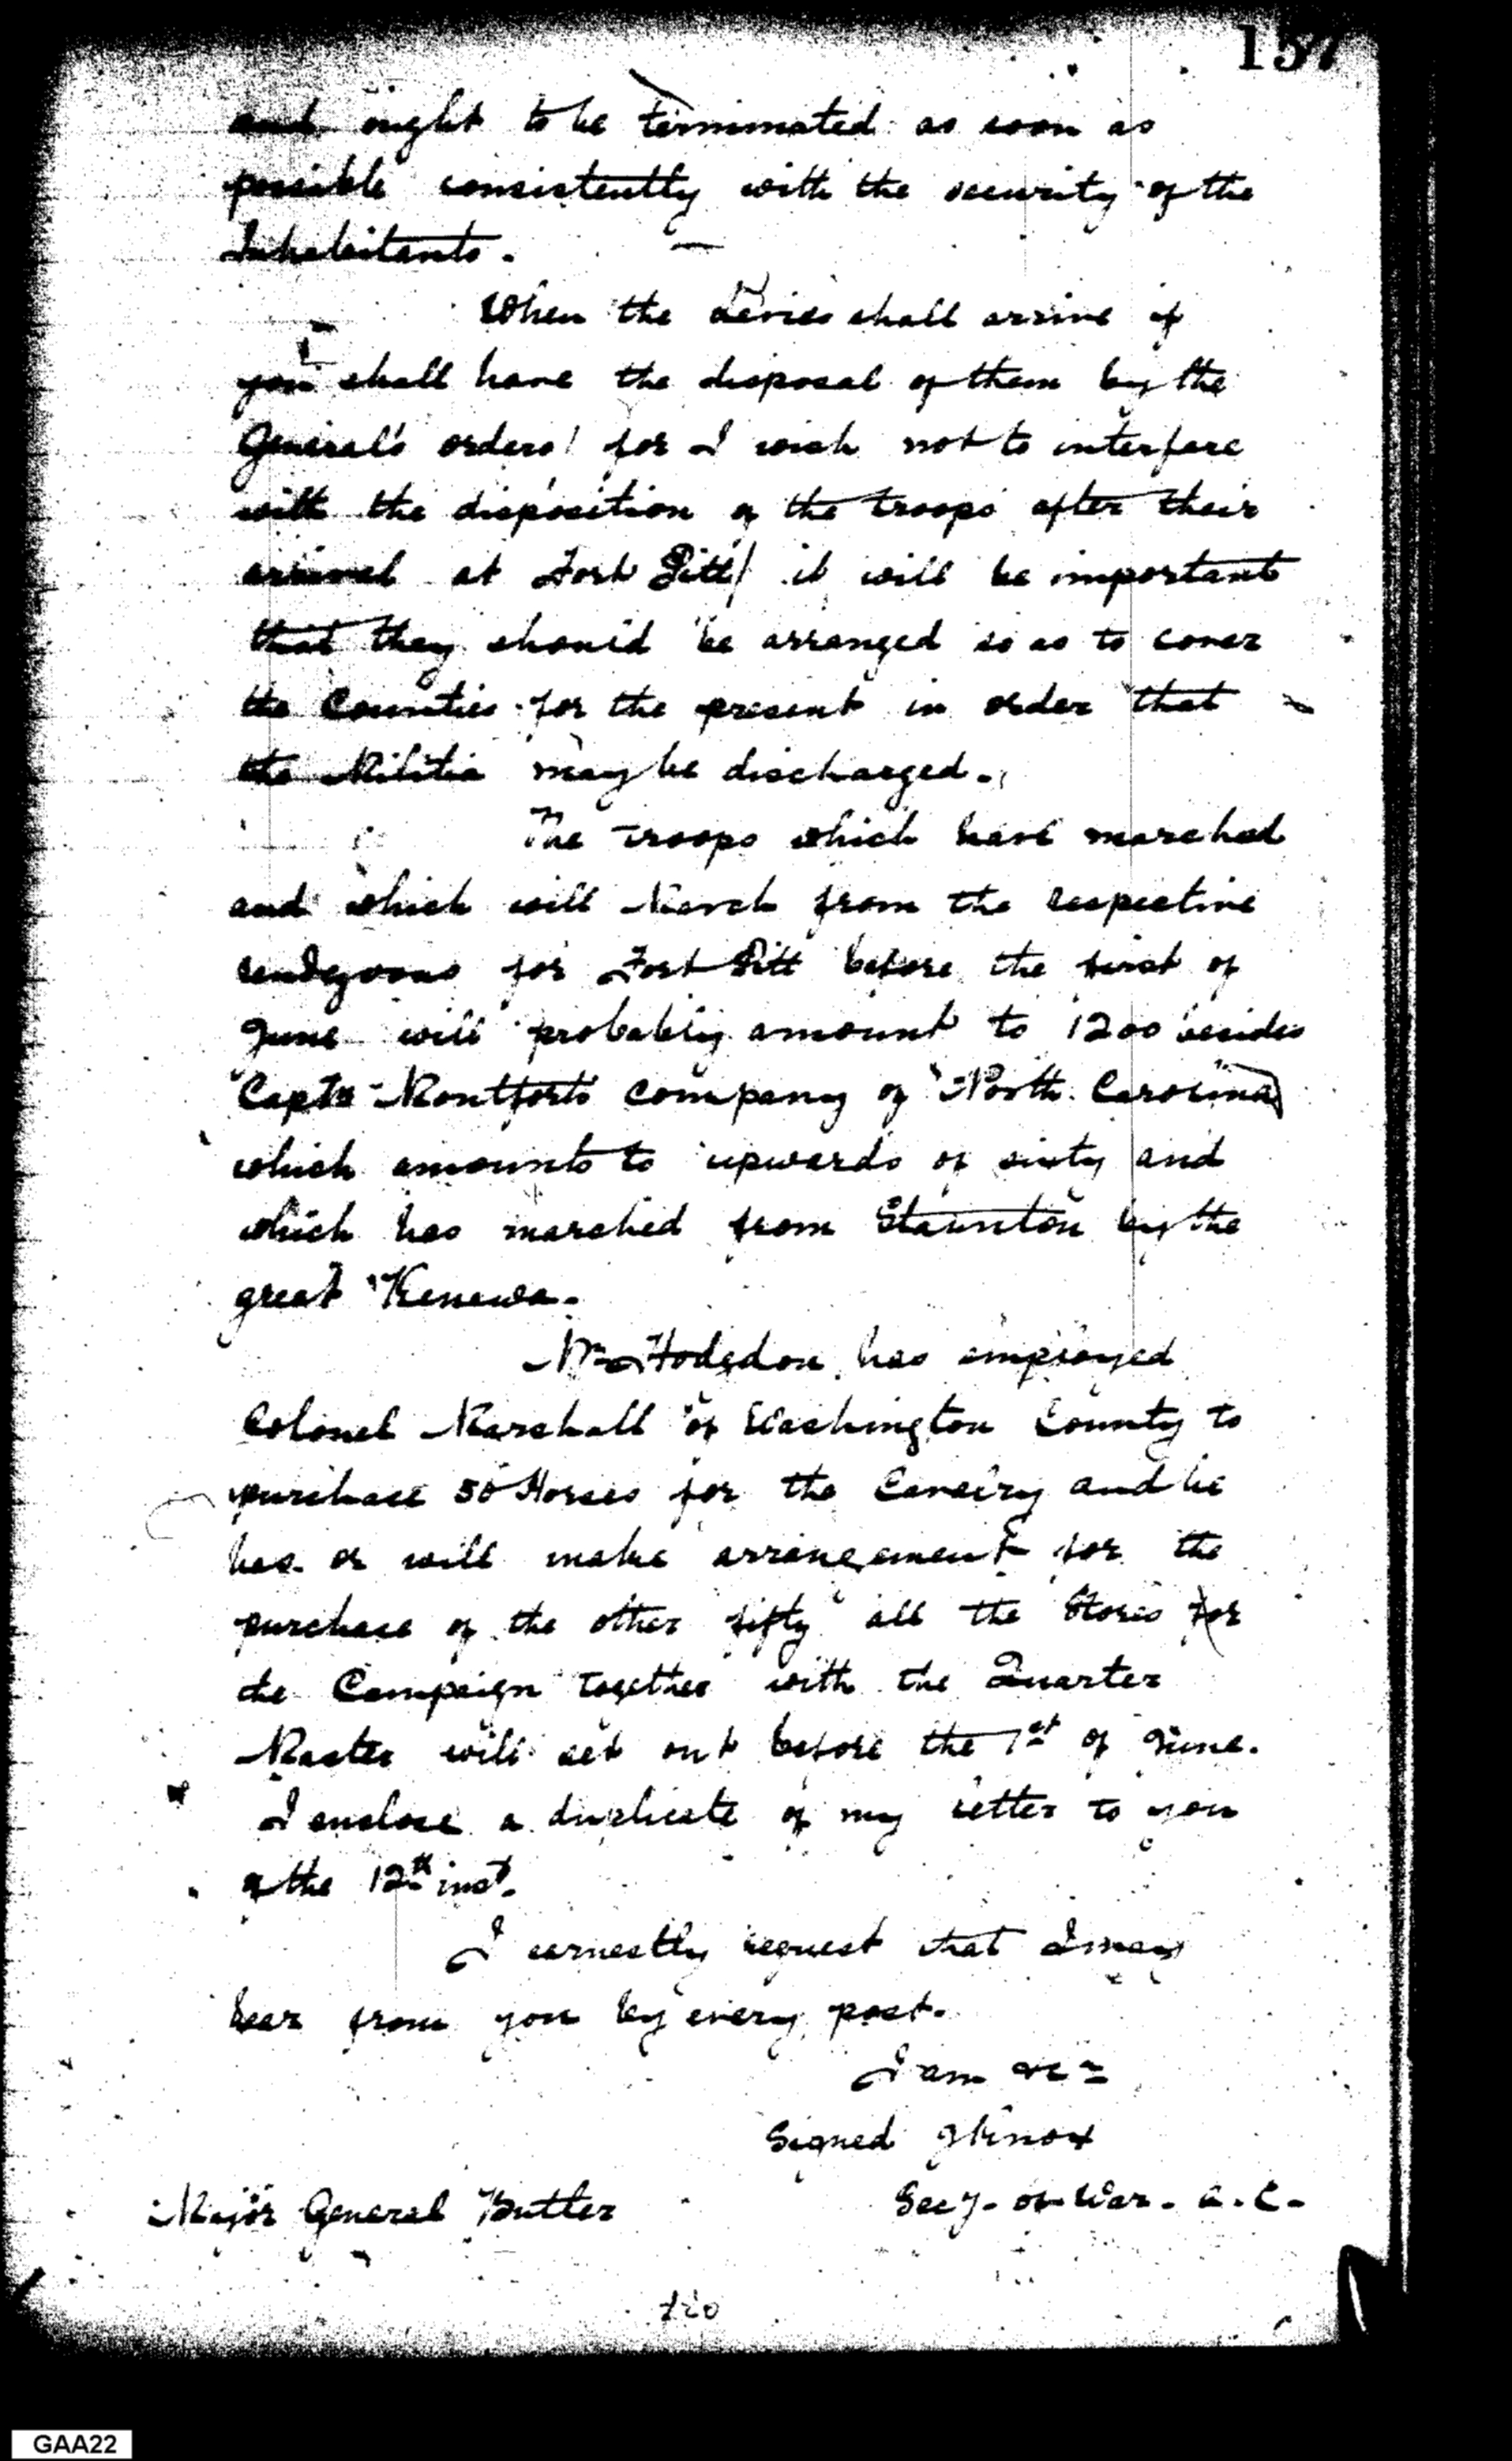 157
and ought to be terminated as soon as
possible consistently with the security of the
Inhabitants. —
When the Levies shall arrive if
you shall have the disposal of them by the
General's orders/ for I wish not to interfere
with the disposition of the troops after their
arrival at Fort Pitt/ it will be important
that they should be arranged so as to cover
the Counties for the present in order that
the Militia may be discharged.
The troops which have marched
and which will March from the respective
rendezvous for Fort Pitt before the first of
June will probably amount to 1200 besides
Captn Montforts company of North Carolina
which amounts to upwards of sixty and
which has marched from Staunton by the
great Kenewa.
Mr Hodgdon has employed
Colonel Marshall of Washington County to
purchase 50 Horses for the Cavalry and he
has or will make arrangement for the
purchase of the other fifty all the Stores for
the Campaign together with the Quarter
Master will set out before the 1st of June.
I enclose a duplicate of my letter to you
of the 12th inst.
I earnestly request that I may
hear from you by every post.
I am &c
Signed HKnox
Secy. of War.
Major General Butler
GAA22